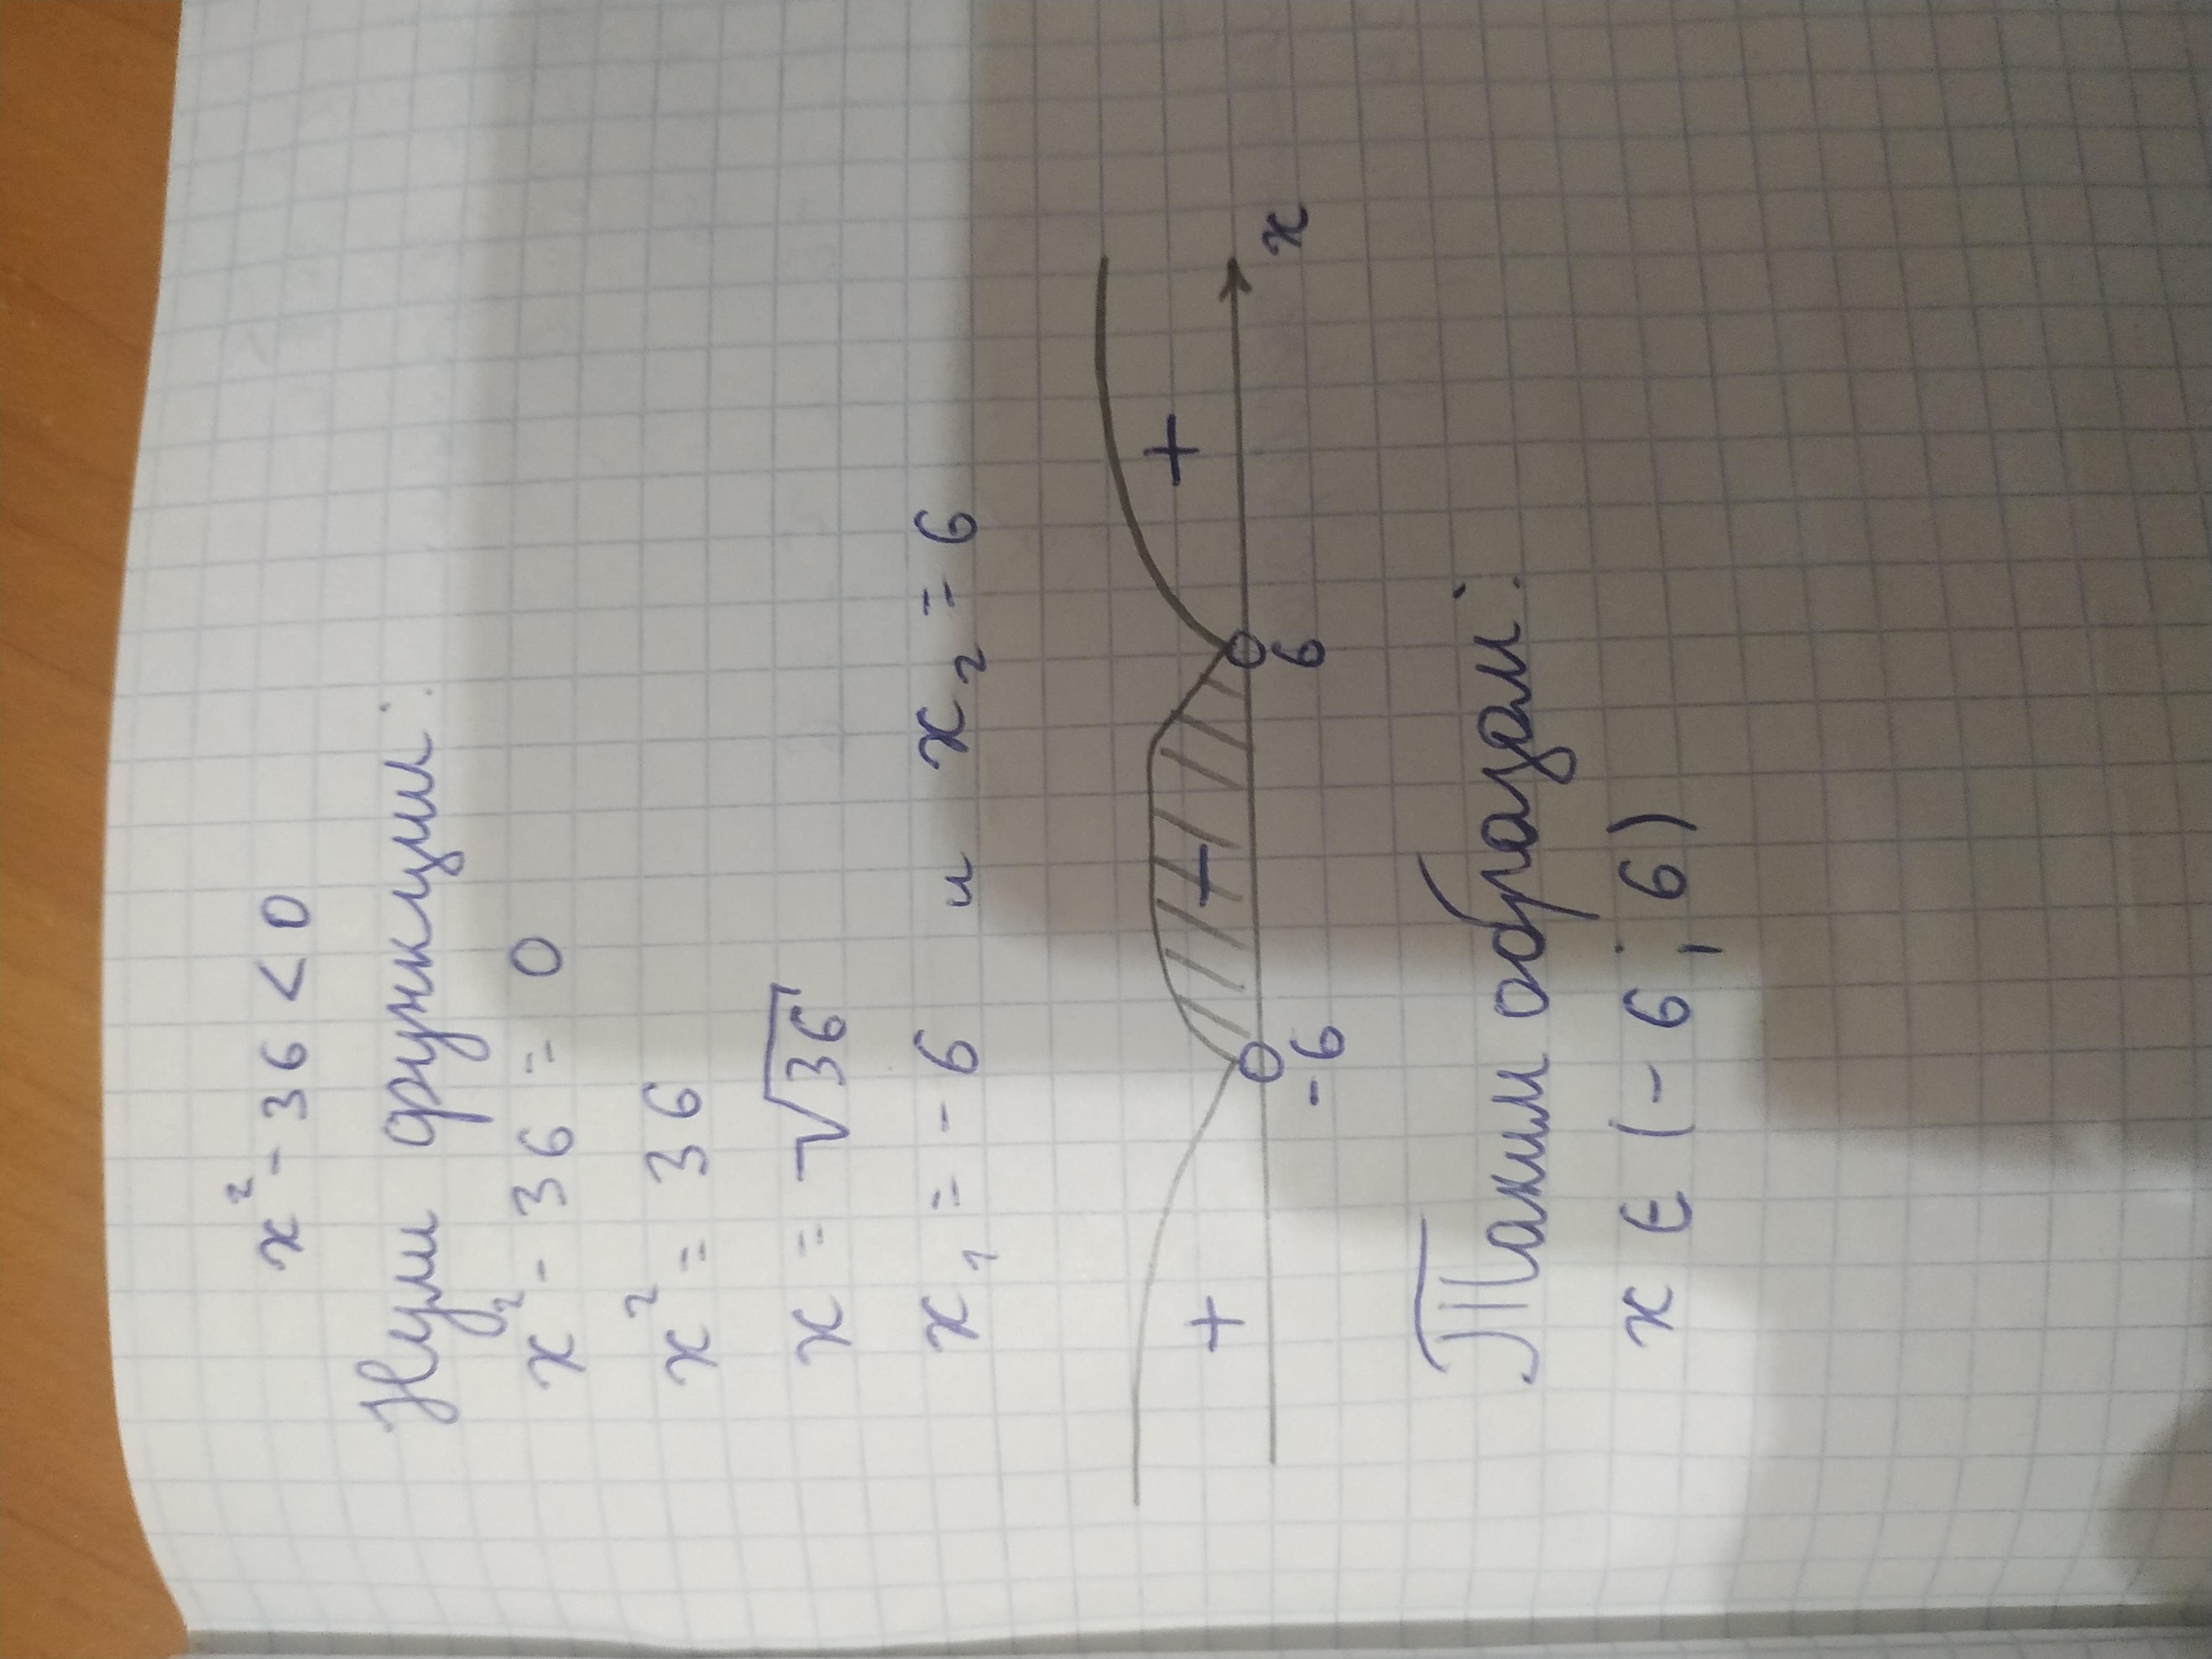 x² - 36 < 0
Нули функции:
x² - 36 = 0
x² = 36
x = √36
x₁ = - 6 и x₂ = 6
+ - +
-6 6 x
Таким образом:
x ∈ (- 6 ; 6)